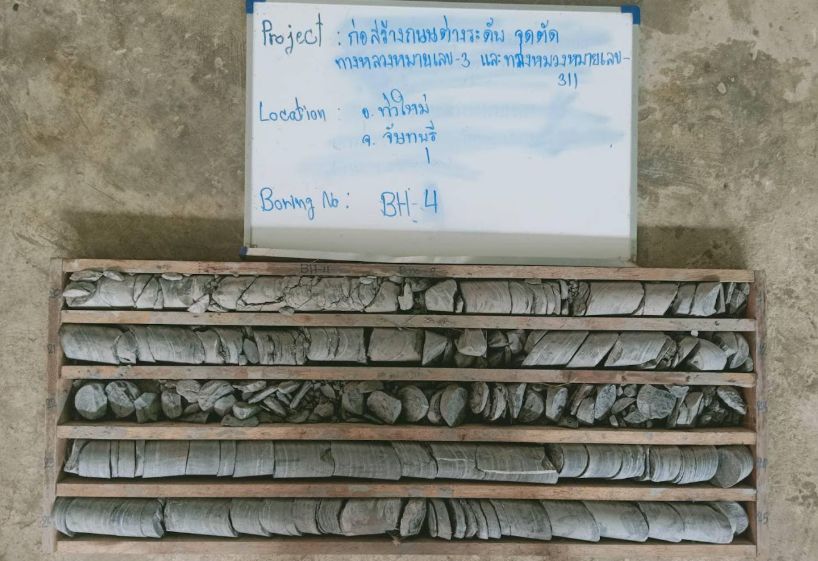 Project : ก่อสร้างถนนต่างระดับ จุดตัด
ทางหลวงหมายเลข-3 และทางหลวงหมายเลข-
311
Location : อ. ท่าใหม่
จ. จันทบุรี
1
Boring No : BH-4
BH-4